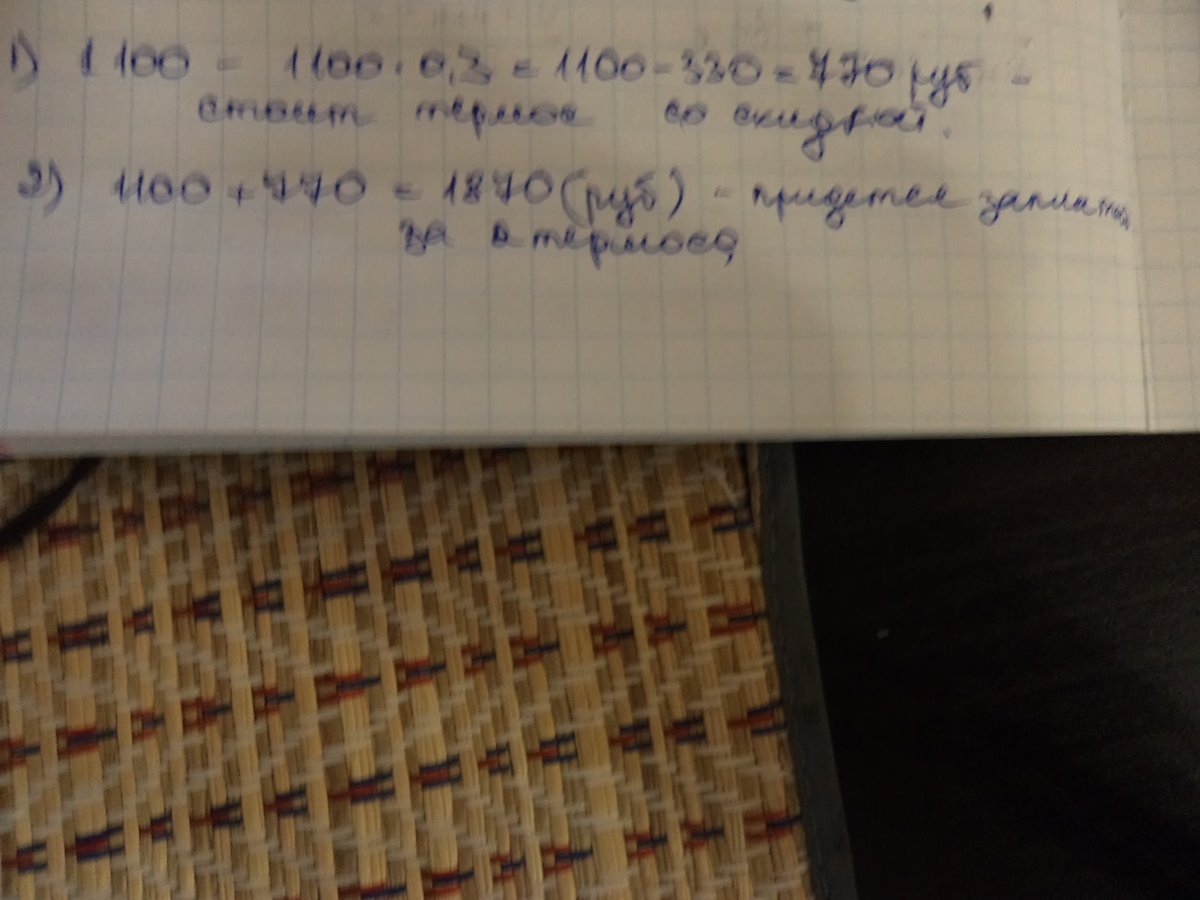 1) 1100 - 1100 · 0,3 = 1100 - 330 = 770 руб -
стоит термос со скидкой.
2) 1100 + 770 = 1870 (руб) - придется заплатить
за 2 термоса